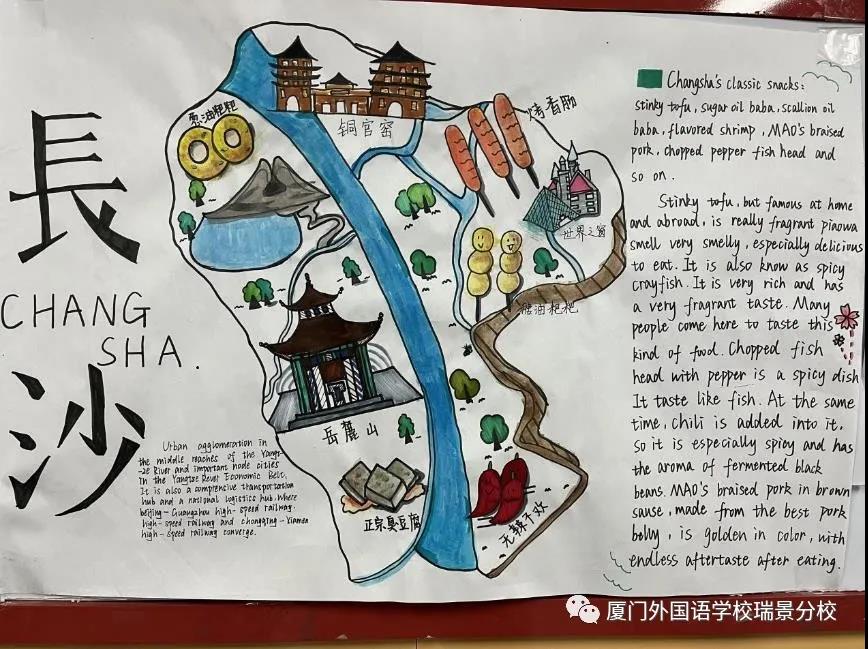 長
沙
CHANG
SHA.
葱油粑粑
铜官窑
烤香肠
世界之窗
糖油粑粑
岳麓山
正宗臭豆腐
无辣不欢
Urban agglomeration in
the middle reaches of the Yangt-
-ze River and important node cities
in the Yangtze River Economic Belt.
It is also a comprensive transportation
hub and a national logistics hub. Where
beijing-Guangzhou high-speed railway.
high-speed railway and chongqing-Xiamen
high-speed railway converge.
Changsha's classic snacks:
stinky tofu, sugar oil baba, scallion oil
baba, flavored shrimp, MAO's braised
pork, chopped pepper fish head and
so on.
Stinky tofu, but famous at home
and abroad, is really fragrant
smell very smelly, especially delicious
to eat. It is also know as spicy
crayfish. It is very rich and has
a very fragrant taste. Many
people come here to taste this
kind of food. Chopped fish
head with pepper is a spicy dish
It taste like fish. At the same
time, chili is added into it,
so it is especially spicy and has
the aroma of fermented black
beans. MAO's braised pork in brown
sause, made from the best pork
belly, is golden in color, with
endless aftertaste after eating.
厦门外国语学校瑞景分校